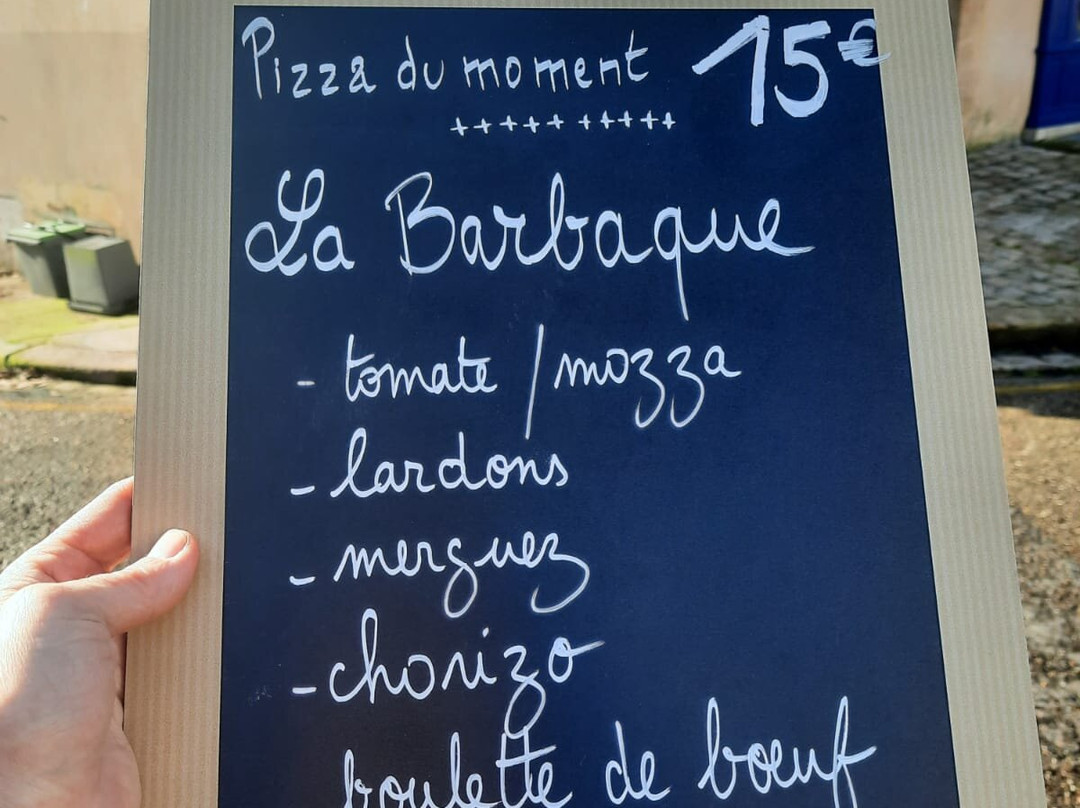 Pizza du moment 15€
++++++++++
La Barbaque
- tomate / mozza
- lardons
- merguez
- chorizo
boulette de bœuf